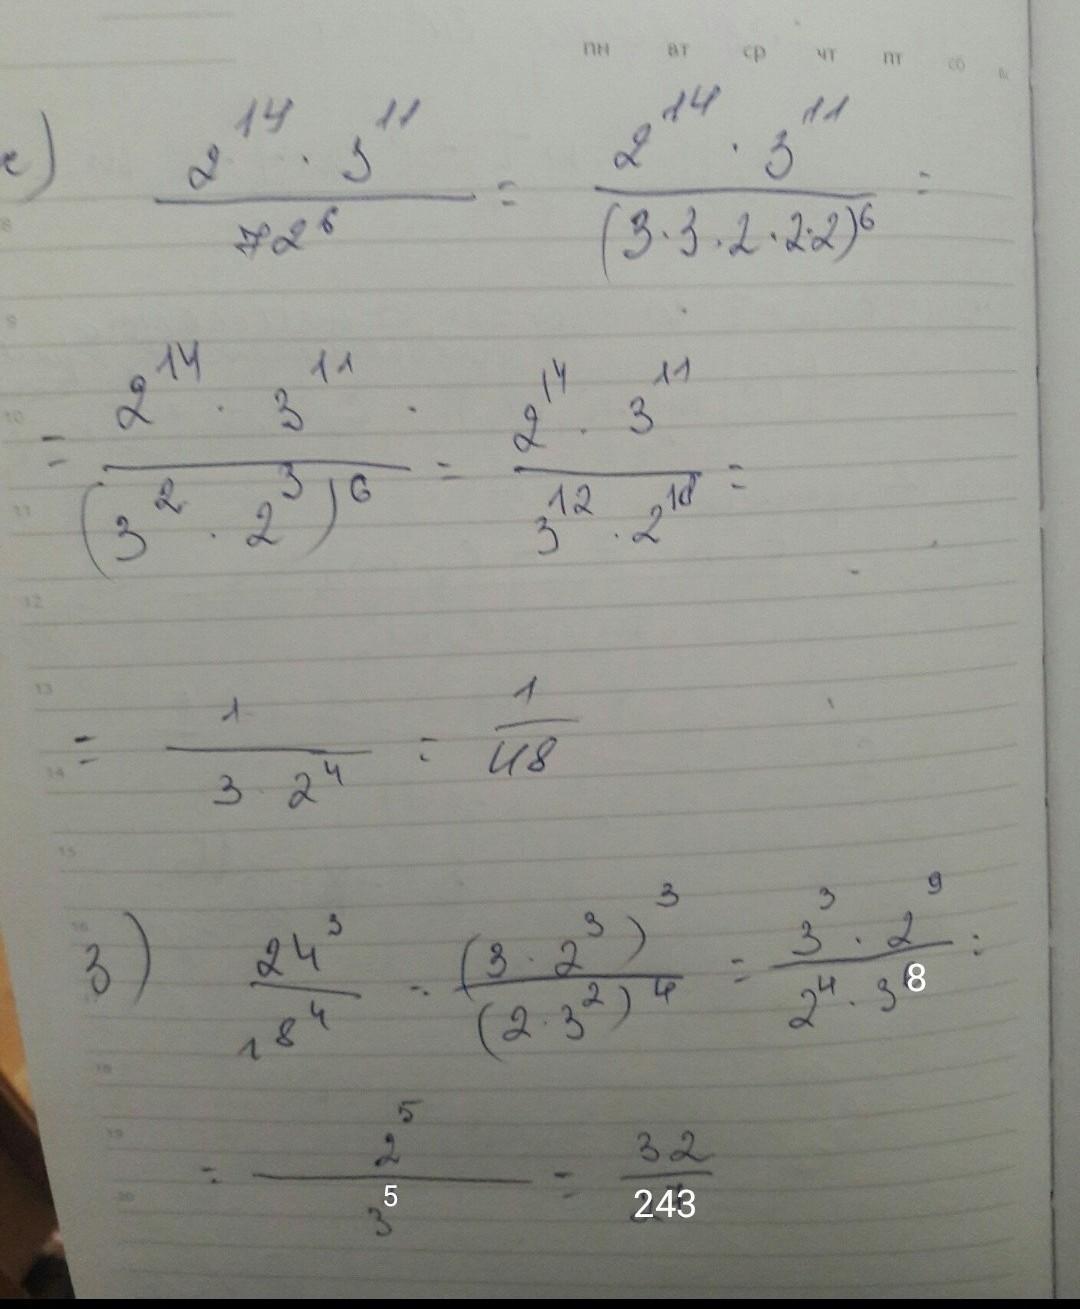 пн вт ср чт пт сб
е) 2^14 · 3^11 / 72^6 = 2^14 · 3^11 / (3·3·2·2·2)^6 =
= 2^14 · 3^11 / (3^2 · 2^3)^6 = 2^14 · 3^11 / 3^12 · 2^18 =
= 1 / 3 · 2^4 = 1 / 48
3) 24^3 / 18^4 = (3 · 2^3)^3 / (2 · 3^2)^4 = 3^3 · 2^9 / 2^4 · 3^8 =
= 2^5 / 3^5 = 32 / 243